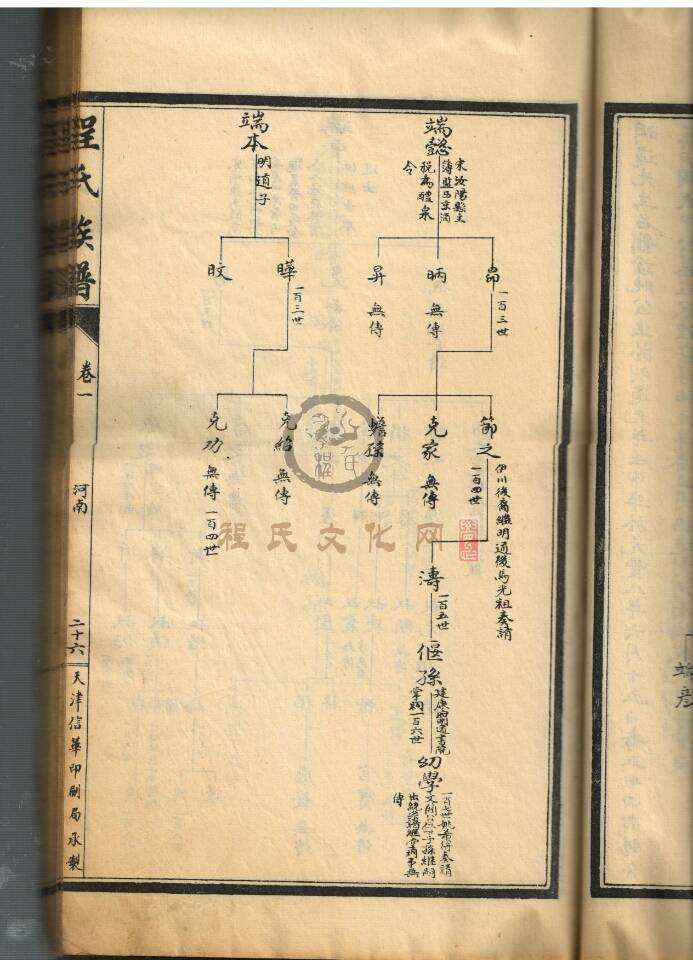 端懿
宋汝陽縣主
簿監西京酒
稅為醴泉
令
昂
一百三世
昞 無傳
昇 無傳
節之
伊川後裔繼明道後馬光祖奏請
一百四世
克家 無傳
蟾孫 無傳
濤
一百五世
偃孫
建康明道書院
掌祠一百六世
幼學
一百七世姚希得奏請
傳
端本
明道子
曄
一百三世
旼
克紿 無傳
克功 無傳 一百四世
程氏族譜
卷一
河南
二十六
天津信華印刷局承製
程氏文化网
端彥